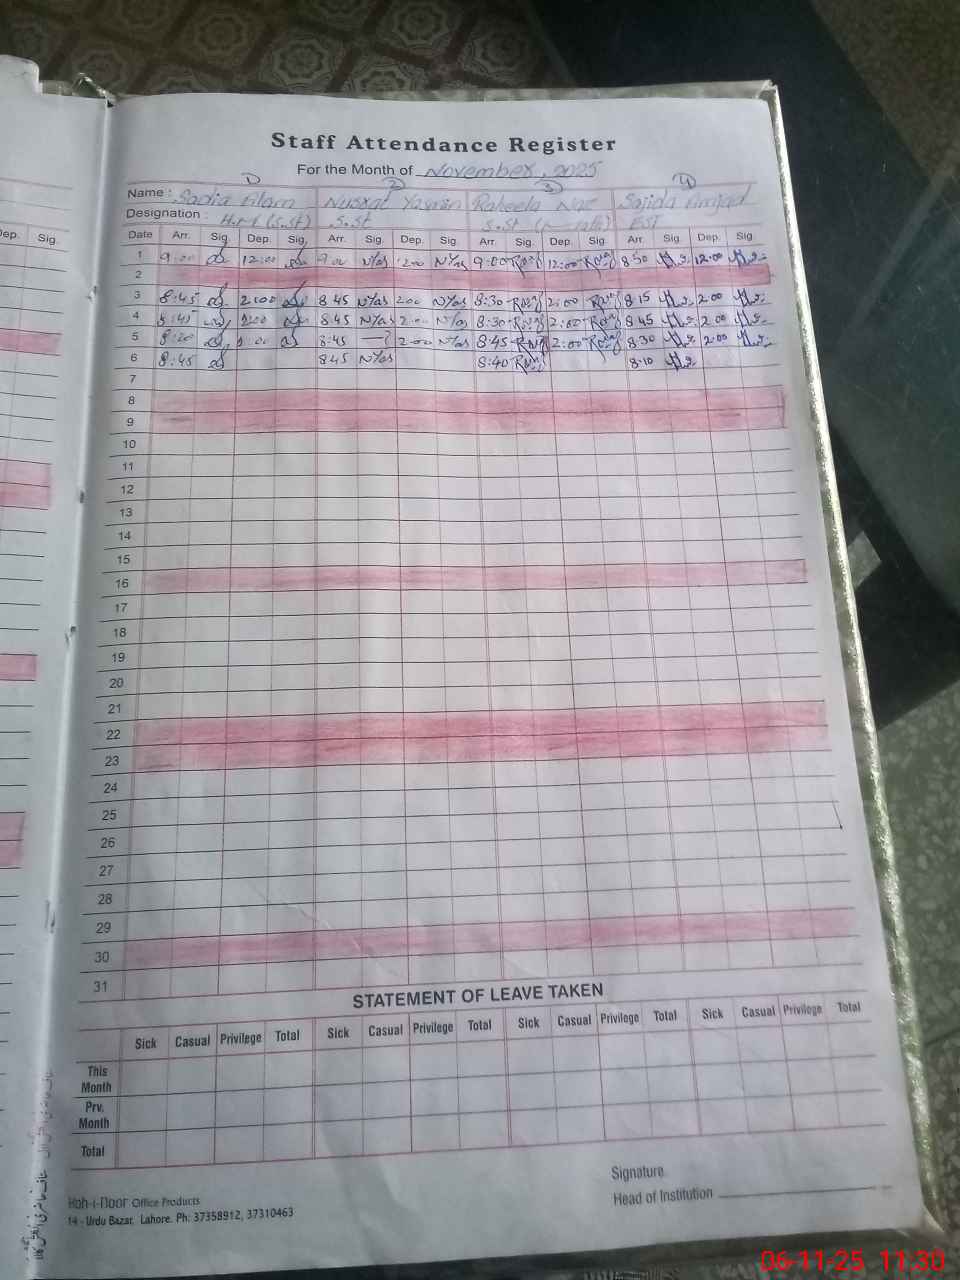 Staff Attendance Register
For the Month of November, 2025
1 2 3 4
Name : Sadia Alam Nusrat Yasmin Raheela Naz Sajida Amjad
Designation : H.M (S.St) S.St S.St EST
Dep. Sig.
Date Arr. Sig. Dep. Sig. Arr. Sig. Dep. Sig. Arr. Sig. Dep. Sig. Arr. Sig. Dep. Sig.
1 9:00 12:00 9:00 N/as 1200 N/as 9:00 12:00 8 50 12:00
2
3 8:45 2:00 8 45 N/as 200 N/as 8:30 2:00 8 15 2:00
4 8:45 2:00 8.45 N/as 2:00 N/as 8:30 2:00 8 45 2:00
5 8:00 :00 8:45 2:00 N/as 8:45 2:00 8 30 2:00
6 8:45 845 N/as 8:40 8:10
7
8
9
10
11
12
13
14
15
16
17
18
19
20
21
22
23
24
25
26
27
28
29
30
31
STATEMENT OF LEAVE TAKEN
Sick Casual Privilege Total Sick Casual Privilege Total Sick Casual Privilege Total Sick Casual Privilege Total
This
Month
Prv.
Month
Total
Signature
Head of Institution
Koh-i-Noor Office Products
14 - Urdu Bazar, Lahore. Ph: 37358912, 37310463
06-11-25 11:30